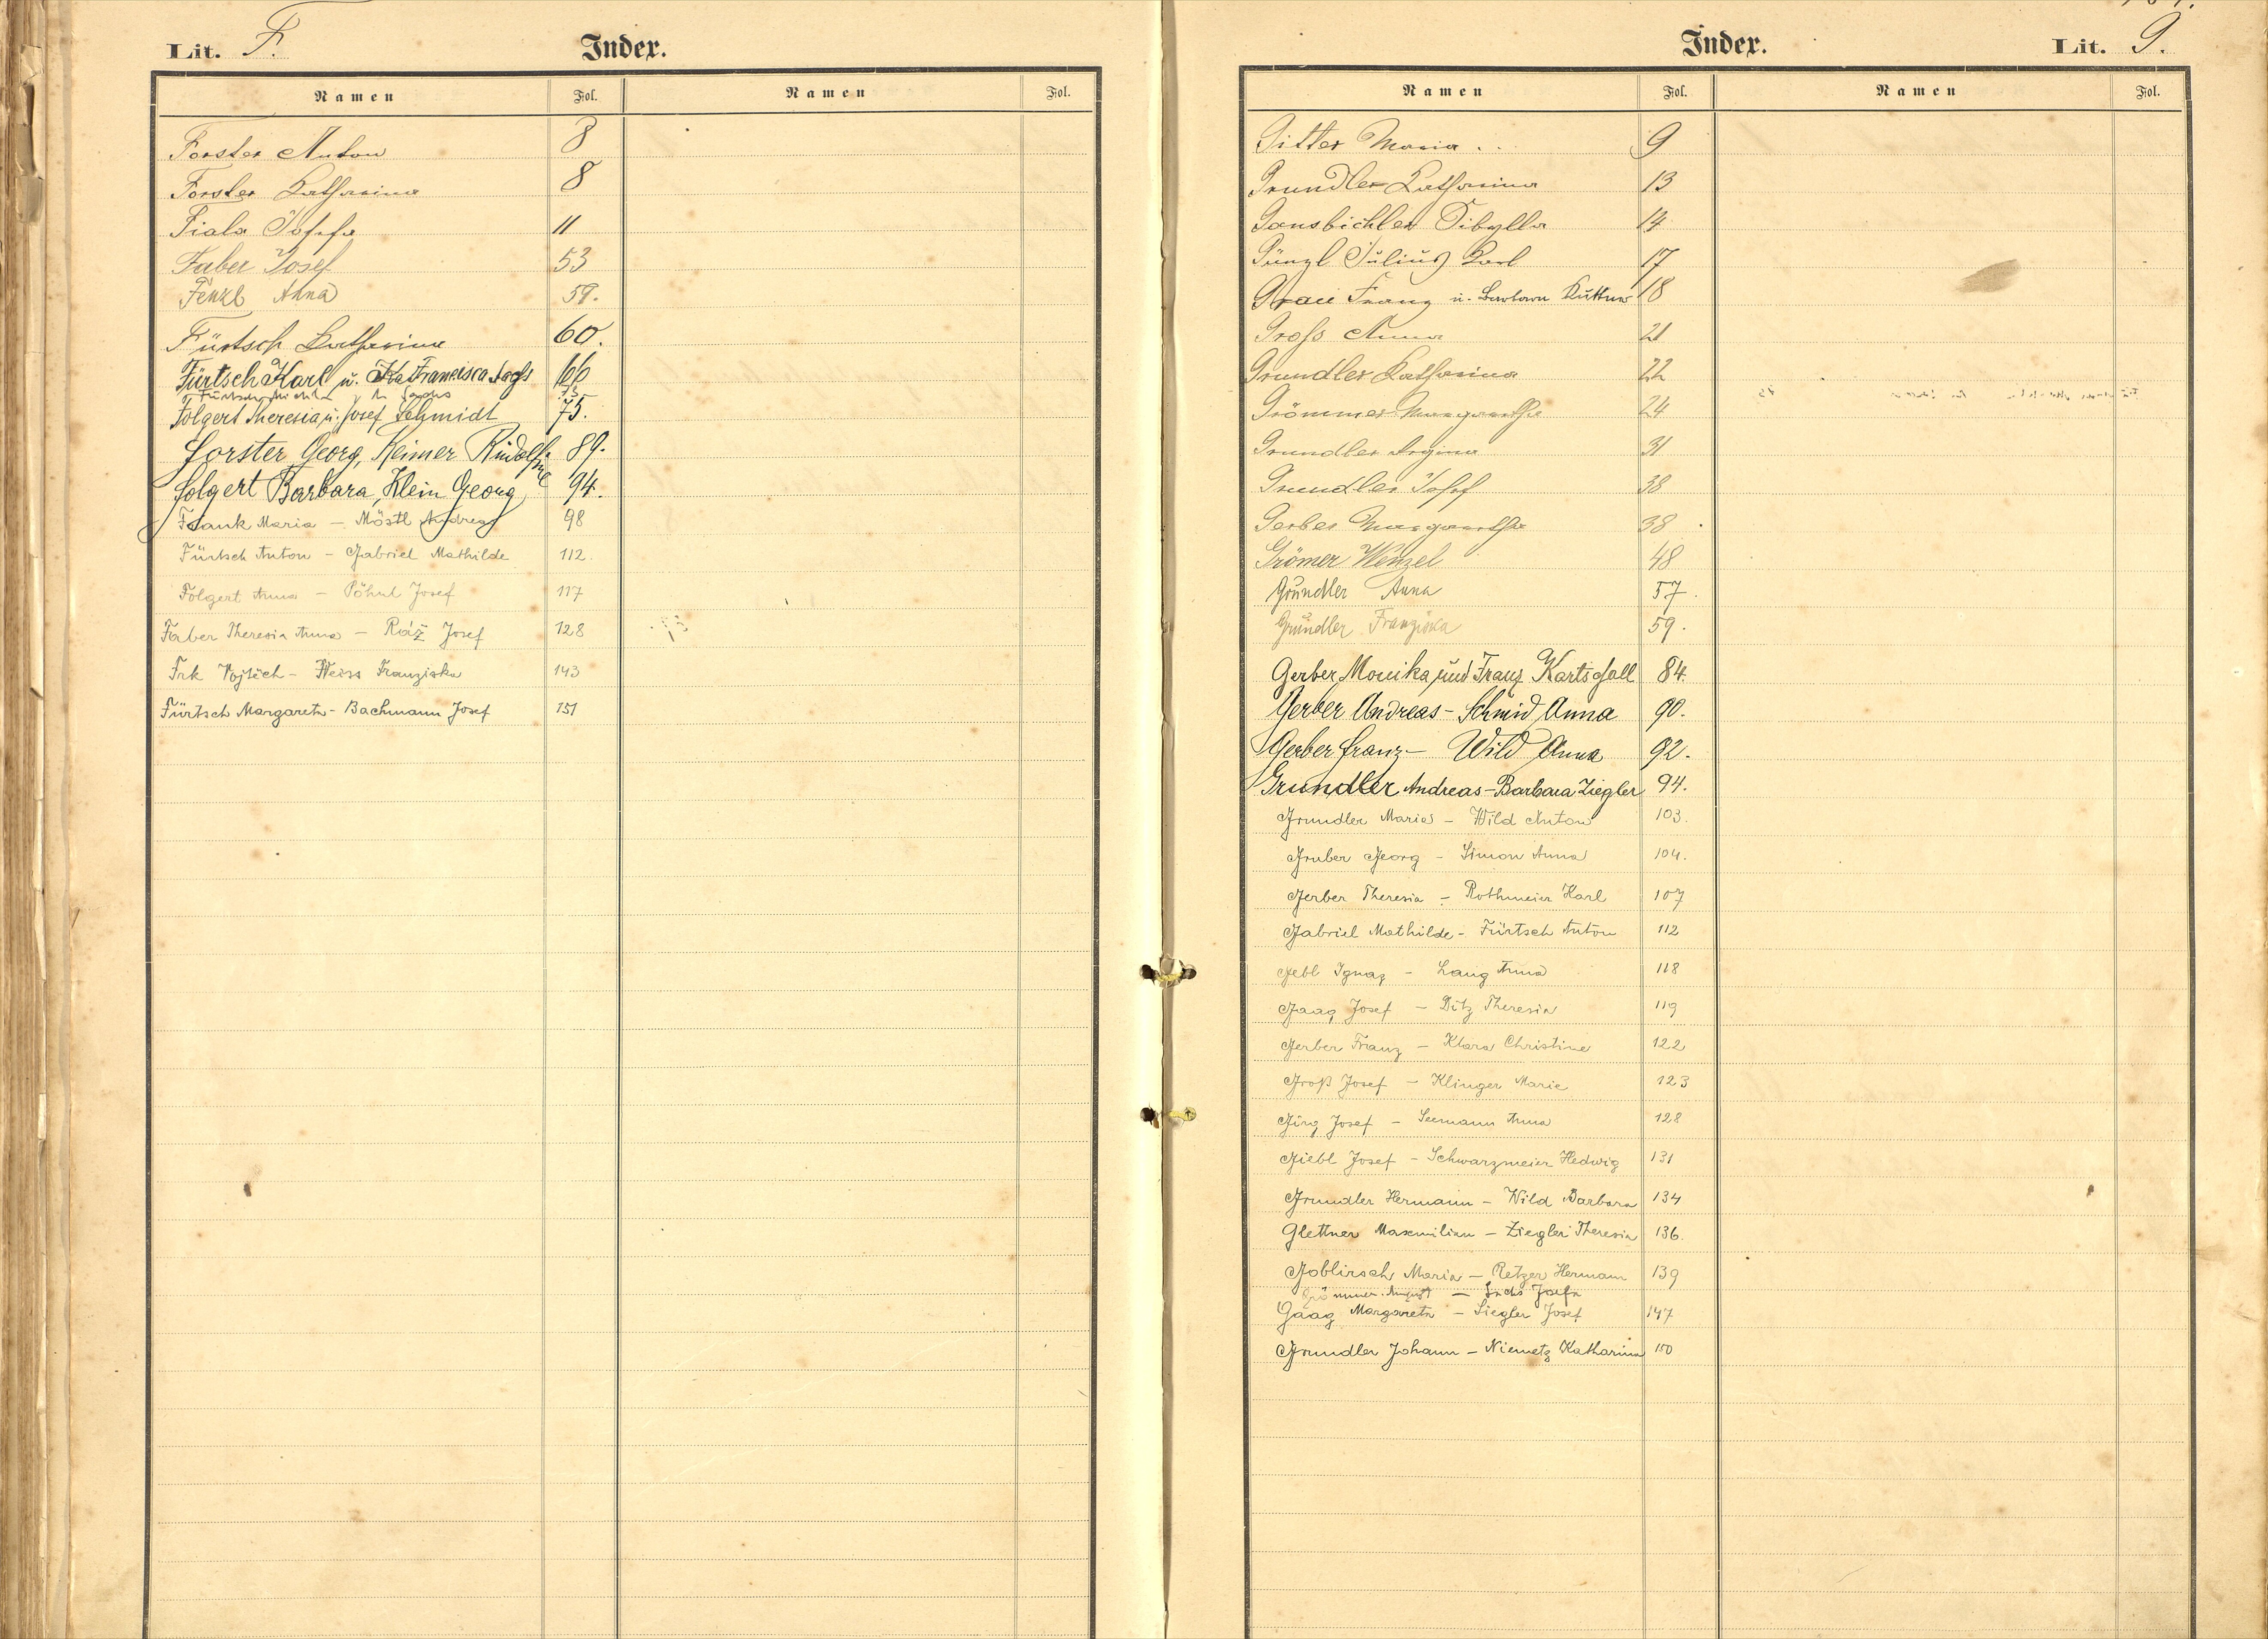 Lit. F.
Index.
Namen Fol. Namen Fol.
Forster Anton 8
Forster Katharina 8
Fiala Josefa 11
Faber Josef 53
Fenzl Anna 59.
Fürtsch Katharina 60.
Fürtsch Karl u. Francisca Sachs 66
Fürtsch
Folgert Theresia u. Josef Schmidt 75.
Forster Georg, Reimer Rudolfine 89.
Folgert Barbara, Klein Georg 94.
Frank Maria – Möstl Andreas 98
Fürtsch Anton – Gabriel Mathilde 112.
Folgert Anna – Pöhnl Josef 117
Faber Theresia Anna – Ráž Josef 128
Frk Vojtěch – Weiss Franziska 143
Fürtsch Margareta – Bachmann Josef 151
Index.
Lit. G.
Namen Fol. Namen Fol.
Gitter Maria .. 9
Grundler Katharina 13
Gansbichler Sibylla 14
Günzl Julius Karl 17
Grau Franz u. Barbara Kuttner 18
Groß Anna 21
Grundler Katharina 22
Grömmer Margaretha 24
Grundler Regina 31
Grundler Josef 38
Gerber Margaretha 38
Grömer Wenzel 48
Grundler Anna 57.
Grundler Franziska 59.
Gerber Monika und Franz 84.
Gerber Andreas – Schmid Anna 90.
Gerber Franz – Wild Anna 92.
Grundler Andreas – Barbara Ziegler 94.
Grundler Marie – Wild Anton 103.
Gruber Georg – Simon Anna 104.
Gerber Theresia – Rothmeier Karl 107
Gabriel Mathilde – Fürtsch Anton 112
Gebl Ignaz – Lang Anna 118
Gaag Josef – Ditz Theresia 119
Gerber Franz – Klara Christine 122
Groß Josef – Klinger Marie 123
Girg Josef – Seemann Anna 128
Giebl Josef – Schwarzmeier Hedwig 131
Grundler Hermann – Wild Barbara 134
Glettner Maxmilian – Ziegler Theresia 136.
Goblirsch Maria – Retzer Hermann 139
Grömmer August – Sachs Josefa
Gaag Margareta – Siegler Josef 147
Grundler Johann – Niemetz Katharina 150